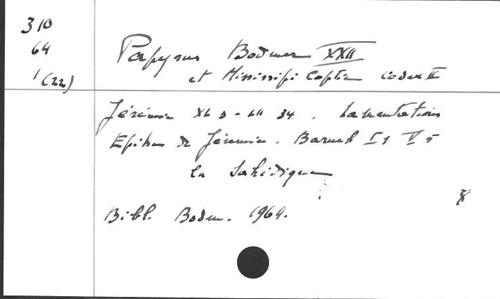 310
64
1 (22)
Papyrus Bodmer XXII
et Mississipi Coptic codex II
Jérémie XL 3 - LII 34. Lamentations
Epître de Jérémie. Baruch I 1 V 5
en Sahidique
8
Bibl. Bodm. 1964.